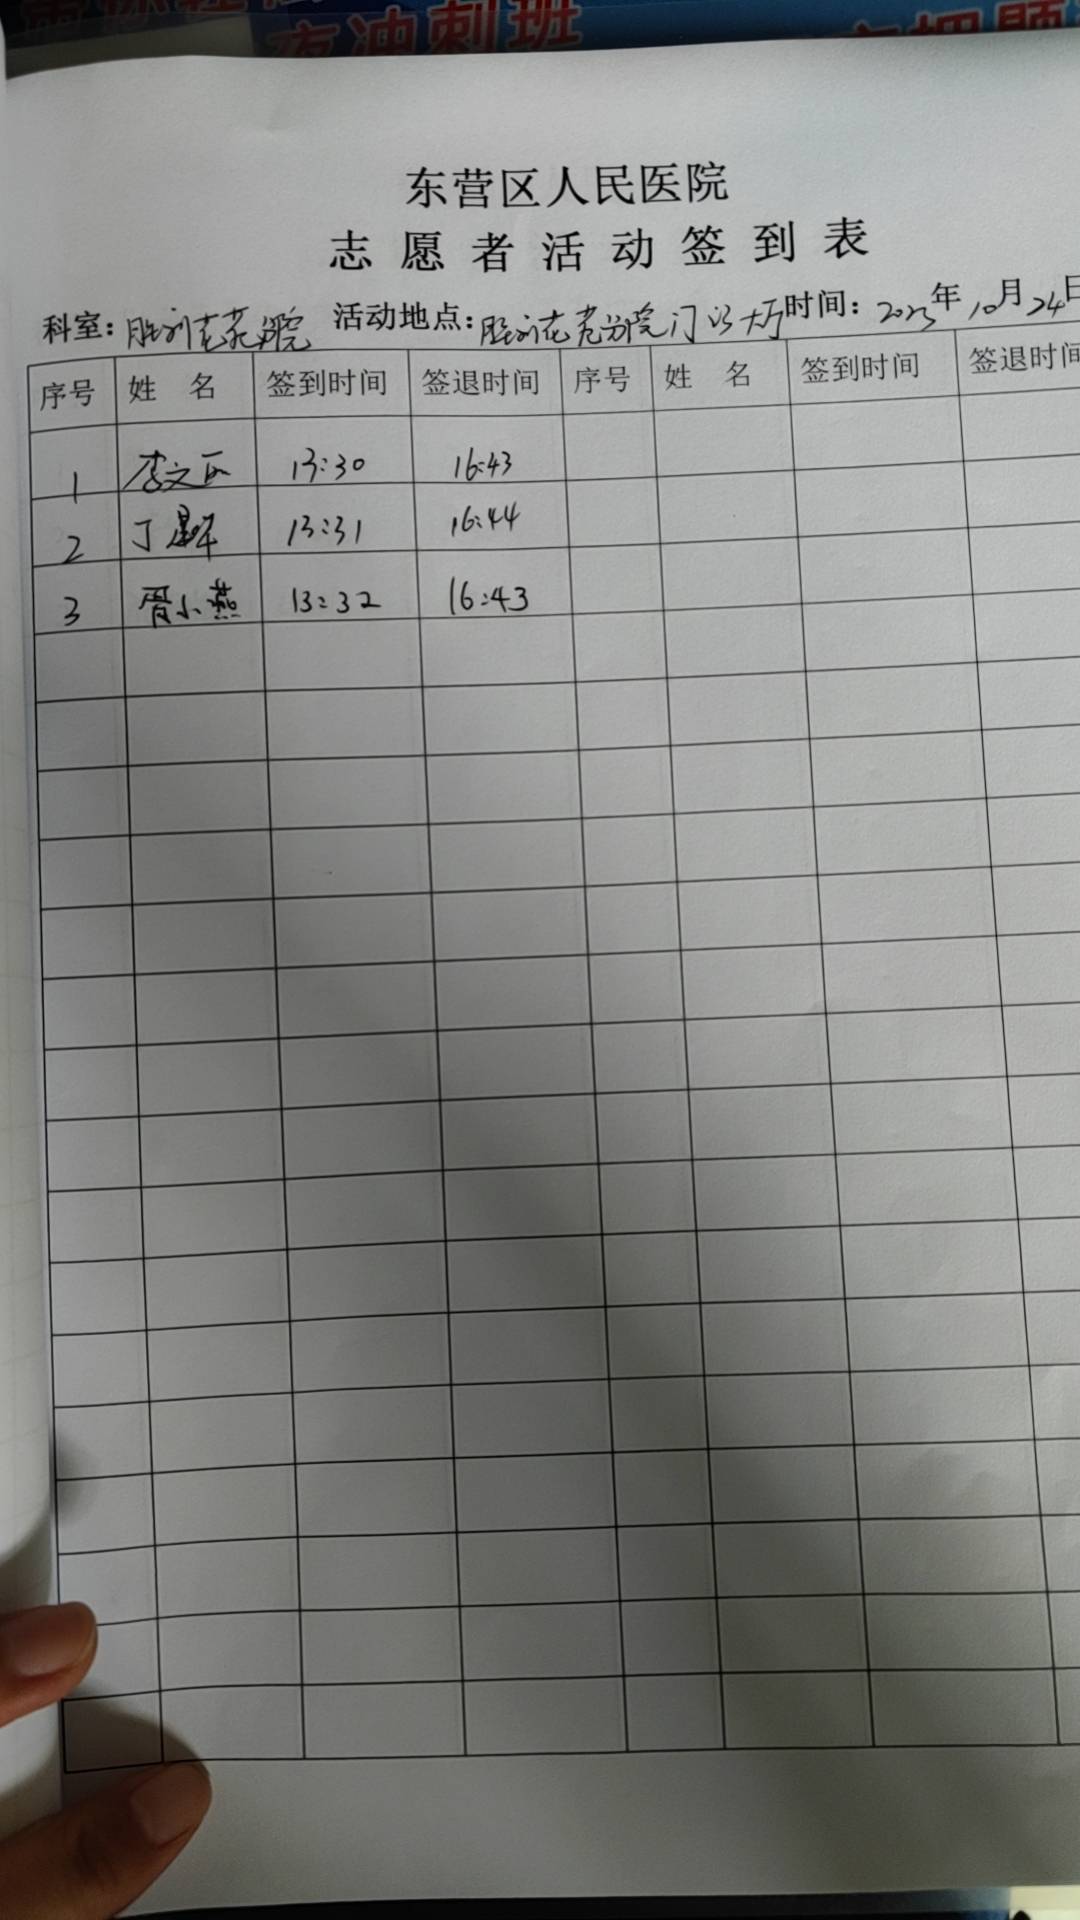 夜冲刺班
东营区人民医院
志愿者活动签到表
科室：胜利花苑分院 活动地点：胜利花苑分院门诊大厅 时间：2023年10月24日
序号 姓名 签到时间 签退时间 序号 姓名 签到时间 签退时间
1 李文 13:30 16:43
2 丁 13:31 16:44
3 胥小燕 13:32 16:43